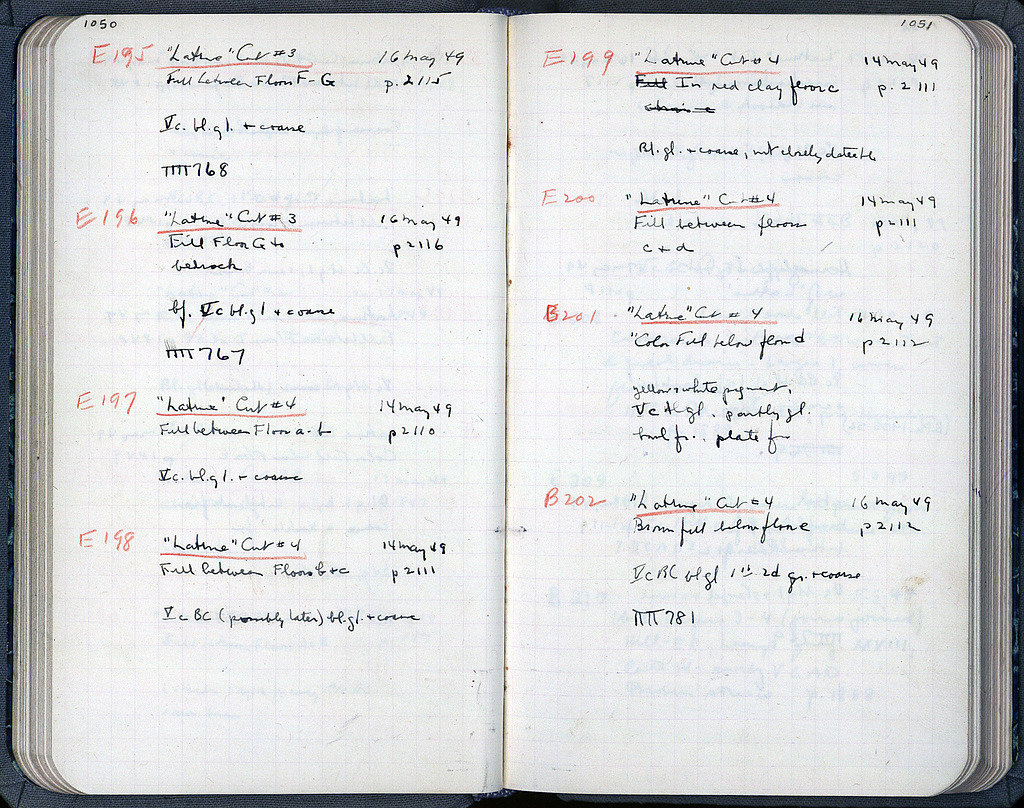 1050
E195 "Latrine" Cut #3 16 May 49
Fill between Floors F-G p. 2115
Vc. bl.gl. + coarse
ΠΠ 768
E196 "Latrine" Cut #3 16 May 49
Fill Floor G to p 2116
bedrock
bf. Vc bl.gl + coarse
ΠΠ 767
E197 "Latrine" Cut #4 14 May 49
Fill between Floor a-b p 2110
Vc. bl.gl. + coarse
E198 "Latrine" Cut #4 14 May 49
Fill between Floors b+c p 2111
Vc BC (possibly later) bl.gl + coarse
1051
E199 "Latrine" Cut #4 14 May 49
Fill In red clay floor c p. 2111
Bl.gl. + coarse, not closely dateable
E200 "Latrine" Cut #4 14 May 49
Fill between floors p 2111
c + d
E201 "Latrine" Cut # 4 16 May 49
"Color Fill below floor d p 2112
yellow + white pigment.
Vc bl gl. partly gl.
bowl fr.. plate fr
B202 "Latrine" Cut #4 16 May 49
Brown fill below floor e p 2112
Vc BC bl gl 1st-2d qr. + coarse
ΠΠ 781